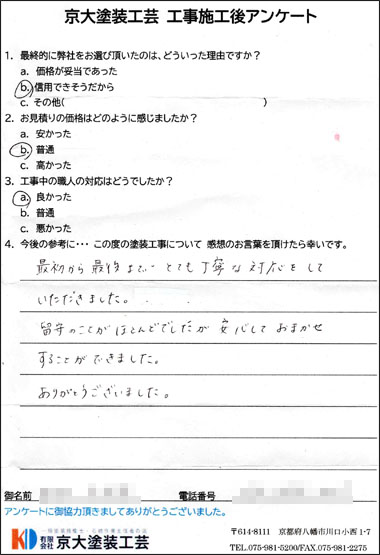 京大塗装工芸 工事施工後アンケート
1. 最終的に弊社をお選び頂いたのは、どういった理由ですか？
a. 価格が妥当であった
b. 信用できそうだから
c. その他( )
2. お見積りの価格はどのように感じましたか？
a. 安かった
b. 普通
c. 高かった
3. 工事中の職人の対応はどうでしたか？
a. 良かった
b. 普通
c. 悪かった
4. 今後の参考に・・・ この度の塗装工事について 感想のお言葉を頂けたら幸いです。
最初から最後まで とても丁寧な対応をして
いただきました。
留守のことがほとんどでしたが 安心しておまかせ
することができました。
ありがとうございました。
御名前 電話番号
アンケートに御協力頂きましてありがとうございました。
KD 有限会社 京大塗装工芸
〒614-8111 京都府八幡市川口小西 1-7
TEL.075-981-5200/FAX.075-981-2275